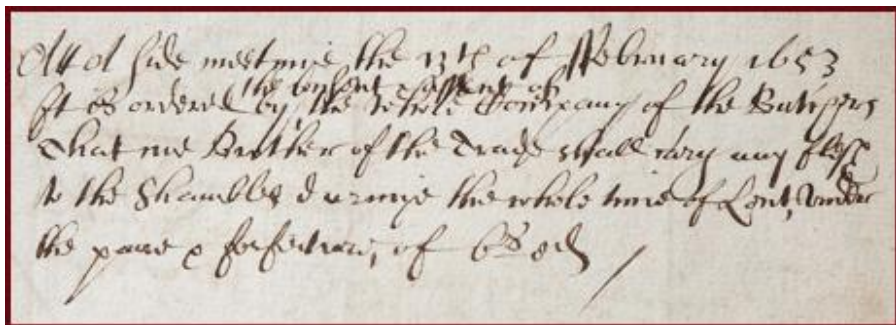 Att a side meetinge the 13th of ffebruary 1653
It is ordered by the consent & assent of the whole Company of the Butchers
That noe Brother of the Trade shall cary any flesh
to the Shambles duringe the whole time of Lent, vnder
the paine & forfeiture, of 6s 8d